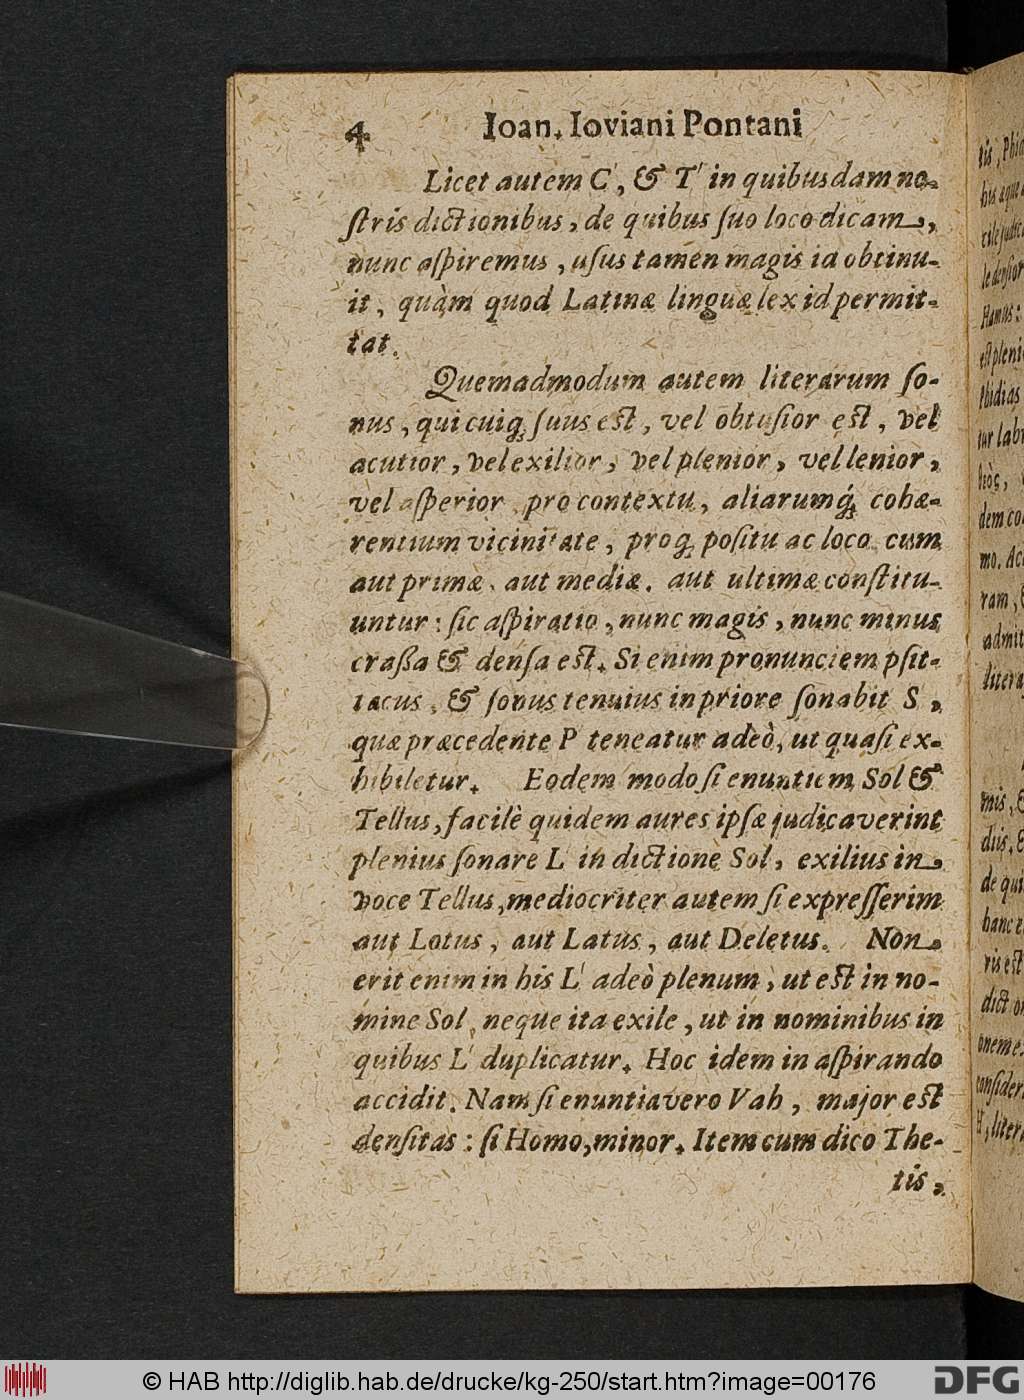 4 Ioan. Ioviani Pontani
Licet autem C', & T' in quibusdam no-
ſtris dictionibus, de quibus ſuo loco dicam,
nunc aſpiremus, uſus tamen magis id obtinu-
it, quàm quod Latinæ linguæ lex id permit-
tat.
Quemadmodum autem literarum ſo-
nus, qui cuiq; ſuus est, vel obtuſior est, vel
acutior, vel exilior, vel plenior, vel lenior,
vel aſperior pro contextu, aliarumq́; cohæ-
rentium vicinitate, proq; poſitu ac loco cum
aut primæ, aut mediæ, aut ultimæ conſtitu-
untur: ſic aſpiratio, nunc magis, nunc minus
craßa & denſa est. Si enim pronunciem pſit-
tacus, & ſonus tenuius in priore ſonabit S,
quæ præcedente P teneatur adeò, ut quaſi ex-
hibiletur. Eodem modo ſi enuntiem Sol &
Tellus, facilè quidem aures ipſæ judicaverint
plenius ſonare L in dictione Sol, exilius in
voce Tellus, mediocriter autem ſi expreſſerim
aut Lotus, aut Latus, aut Deletus. Non
erit enim in his L' adeò plenum, ut est in no-
mine Sol, neque ita exile, ut in nominibus in
quibus L' duplicatur. Hoc idem in aſpirando
accidit. Nam ſi enuntiavero Vah, major est
denſitas: ſi Homo, minor. Item cum dico The-
tis,
© HAB http://diglib.hab.de/drucke/kg-250/start.htm?image=00176
DFG